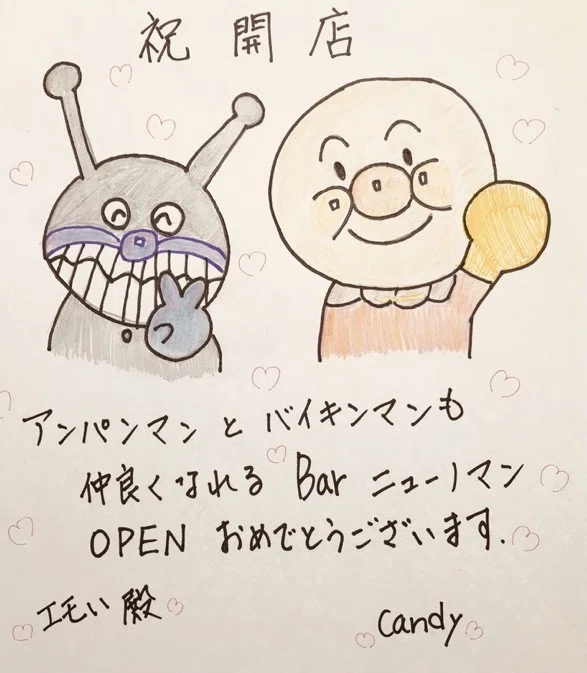 祝開店
アンパンマンとバイキンマンも
仲良くなれる Bar ニューノマン
OPEN おめでとうございます.
エモい殿
Candy